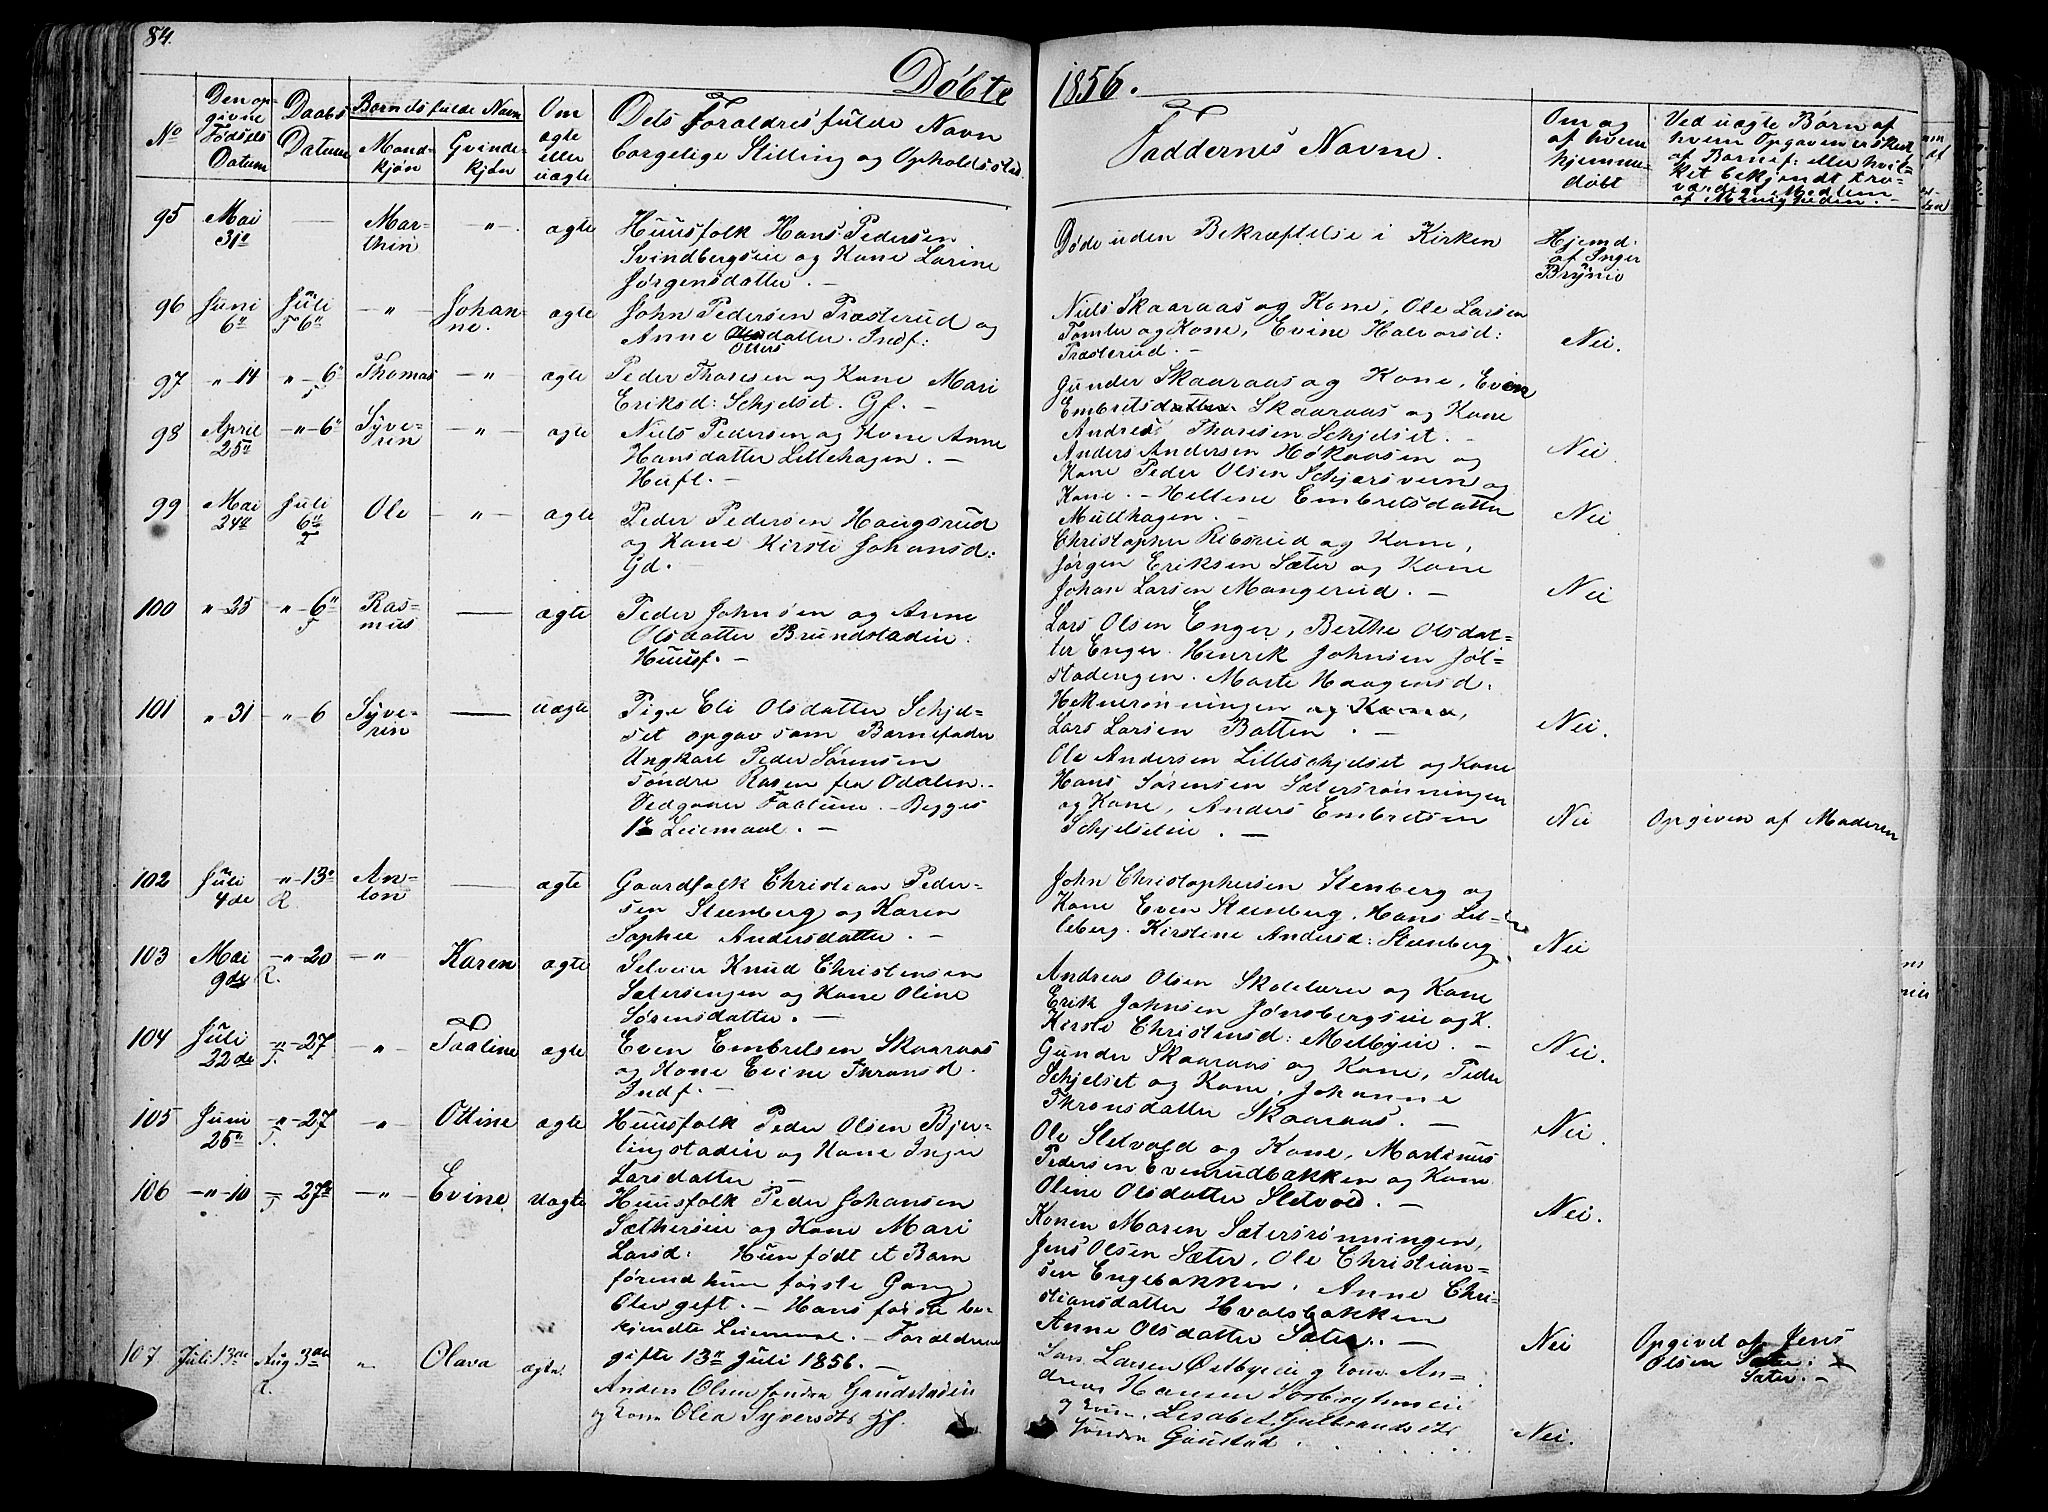 84.
Døbte 1856.
No
Den opgivne Fødsels Datum
Daabs Datum
Barnets fulde Navn
Mandkjøn
Qvindekjøn
Om ægte eller uægte
Dets Forældres fulde Navn
borgelige Stilling og Opholdssted.
Faddernes Navne.
Om og af hvem hjemmedøbt
Ved uægte Børn af
hvem Opgaven er skeet
af Barnef: eller hvil-
ket bekjendt tro-
værdigt Medlem
af Menigheden. -
95 Mai 31" — Mar-thin —"— ægte
Huusfolk Hans Pedersen
Svindbergseie og Kone Larine
Jørgensdatter. -
Døde uden Bekræftelse i Kirken
Hjemd:
af Inger
Brynie
96 Juni 6" Juli 6" T —"— Johanne. ægte
John Pedersen Præsterud og
Anne Olsdatter. Indf:
Otters
Niels Skaaraas og Kone, Ole Larsen
Tomter og Kone, Evine Halvorsd:
Præsterud. -
Nei.
97 "14 "—6" T Thomas —"— ægte
Peder Thoresen og Kone Mari
Eriksd: Schjelset. Gf. -
Gunder Skaaraas og Kone, Even
Embretsdatter Skaaraas og Kone
Andreas Thoresen Schjelset. -
Nei.
98 April 25" "—6" Syve-ren —"— ægte
Niels Pedersen og Kone Anne
Hansdatter Lillehagen. -
Hufl. -
Anders Andersen Høkaasen og
Kone Peder Olsen Schjærsveen og
Kone. - Hellene Embretsdatter
Mullhagen. -
Nei
99 Mai 24" Juli 6" T Ole —"— ægte
Peder Pedersen Haugsrud
og Kone Kirsti Johansd:
Gd. -
Christopher Ribsrud og Kone,
Jørgen Eriksen Sæter og Kone
Johan Larsen Mangerud. -
Nei
100 "25 "—6" T Ras-mus — ægte
Peder Johnsen og Anne
Olsdatter Brundstadeie:
Huusf. -
Lars Olsen Enger, Berthe Olsdat-
ter Enger. Henrik Johnsen Jøl-
stadengen. Marte Haagensd.
Heknerønningen og Kone,
Lars Larsen Batten. -
Nei.
101 "31 "—6 Syve-ren — uægte
Pige Eli Olsdatter Schjel-
set opgav som Barnefader
Ungkarl Peder Sørensen
Søndre Rasen fra Odalen. -
Vedgaaer Faalum. - Begges
1te Leiemaal. -
Ole Andersen Lilleschjelset og Kone
Hans Sørensen Sætersrønningen
og Kone, Anders Embretsen
Schjelseteie. -
Nei
Opgiven af Moderen
102 Juli 4de "—13" R An-ton — ægte
Gaardfolk Christian Peder-
sen Steenberg og Karen
Sophie Andersdatter. -
John Christophersen Stenberg og
Kone Even Steenberg, Hans Lil-
leberg. Kirstine Andersd: Steenberg.
Nei
103 Mai 9de —"—20 R. —"— Karen ægte
Selveier Knud Christensen
Sætersengen og Kone Oline
Sørensdatter. -
Andreas Olsen Skolelærer og Kone
Erik Johnsen Jønsbergseie og K.
Kirsti Christensd: Melbyeie. -
Nei.
104 Juli 22de —"—27 T. —"— Paaline ægte
Even Embretsen Skaaraas
og Kone Evine Thronsd.
Indf. -
Gunder Skaaraas og Kone, Peder
Schjelset og Kone, Johanne
Thronsdatter Skaaraas. -
Nei.
105 Juni 25" —"—27 T. —"— Ottine ægte
Huusfolk Peder Olsen Bjer-
lingstadeie og Kone Inger
Larsdatter. -
Ole Sletvold og Kone, Martinus
Pedersen Evenrudbækken og Kone
Oline Olsdatter Sletvold. -
Nei.
106 —"—10 —27de T —"— Evine uægte
Huusfolk Peder Johansen
Sætherseie og Kone Mari
Larsd: Hun født et Barn
førend hun første Gang
blev gift. - Hans første be-
kjendte Leiemaal. - Forældrene
gifte 13" Juli 1856. -
Konen Maren Sætersrønningen,
Jens Olsen Sæter, Ole Christian-
sen Engebakken, Anne Chri-
stiansdatter Hvalsbakken
Anne Olsdatter Sæter. -
Nei
Opgivet af Jens
Olsen Sæter. -
Sæter. -
107 Juli 13de Aug 3de " Olava ægte.
Anders Olsen Søndre Gaustadeie
og Kone Olea Syversdtr Hf.
Lars Larsen Østbyeie og Kone An-
dreas Hansen
og Kone. Lisabet Gulbrandsdtr
Søndre Gaustad.
Nei.